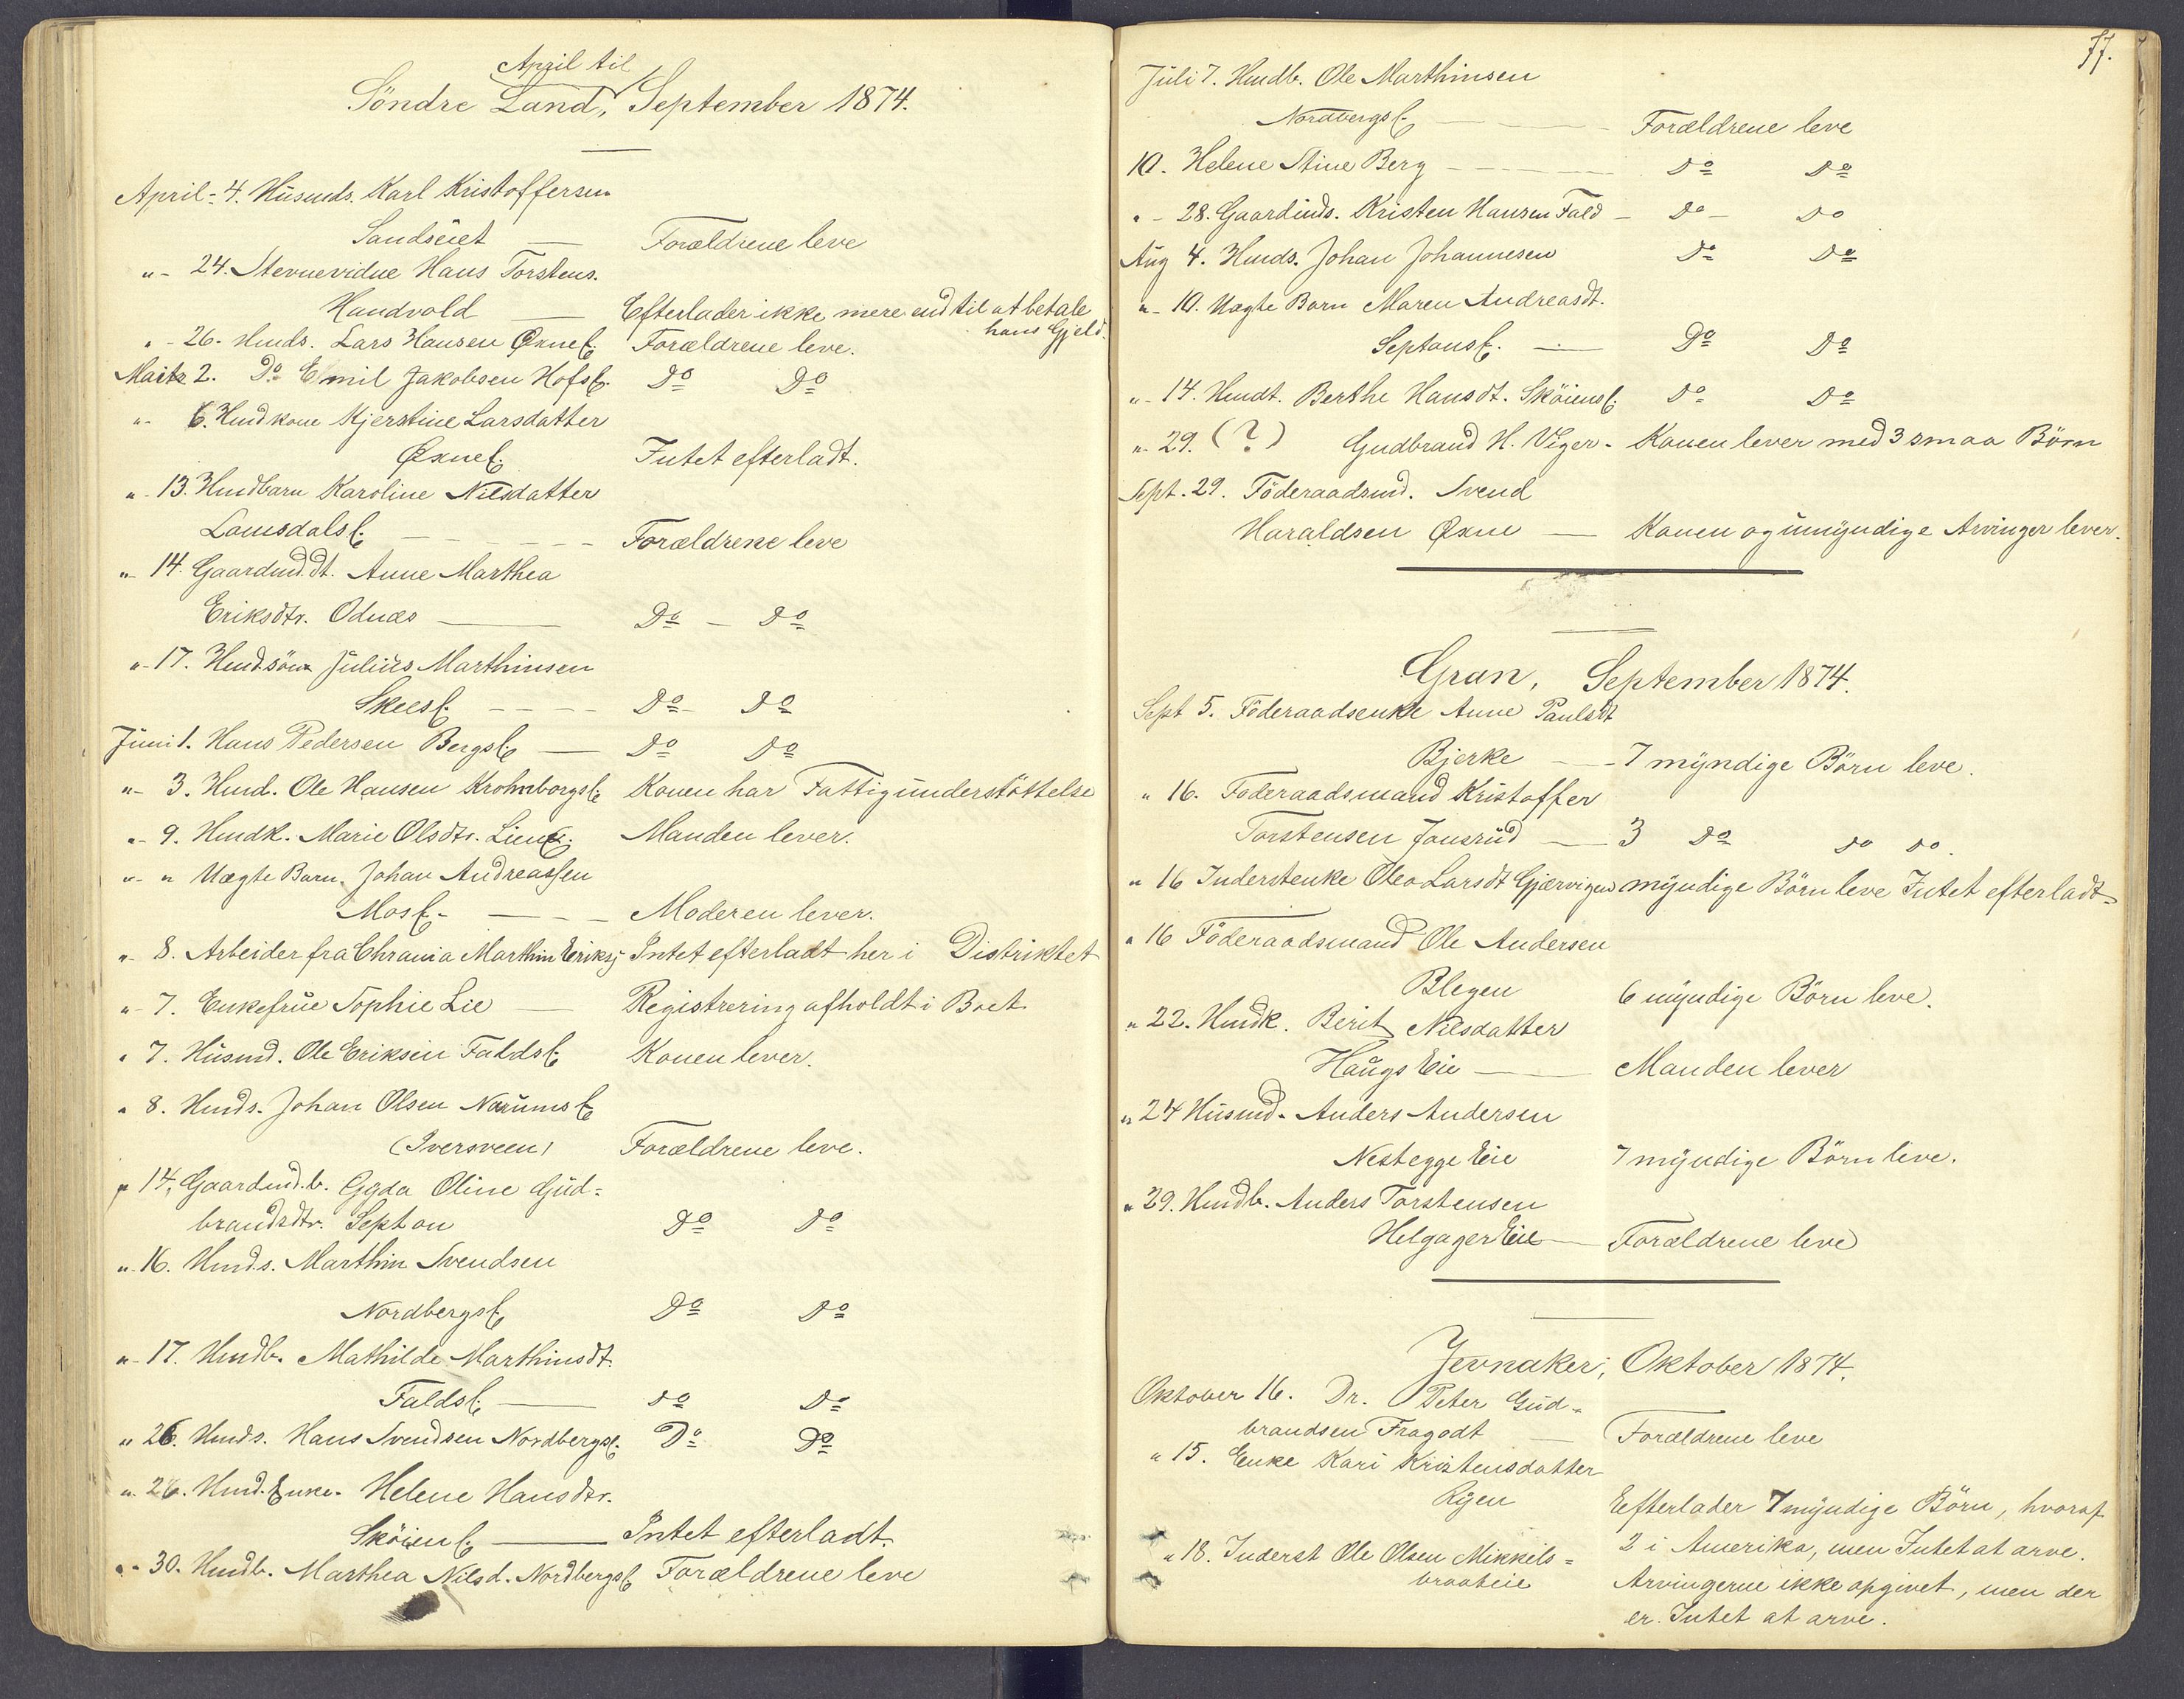 April til
Söndre Land, September 1874.
April - 4. Husmds. Karl Kristoffersen
Sandseiet — Forældrene leve
" - 24. Stevnevidne Hans Torstens.
Haudvold — Efterlader ikke mere end til at betale
hans Gjeld.
" - 26. Hmds. Lars Hansen ØxneE. Forældrene leve.
Mai 2. Do Emil Jakobsen HofsE. Do Do
" - 6. Hmdkone Kjerstine Larsdatter
ØxneE. Intet efterladt.
" - 13. Hmdbarn Karoline Nilsdatter
LomsdalsE. - - - - - Forældrene leve
" - 14. Gaardmd.dt. Anne Marthea
Eriksdtr. Odnæs — Do — Do
" - 17. Hmdsön Julius Marthinsen
SkeesE. - - - - Do - Do
Juni 1. Hans Pedersen BergsE. — Do Do
" - 3. Hmd. Ole Hansen KrohnborgsE. Konen har Fattigunderstöttelse
" - 9. Hmdk. Marie Olsdtr. LienE. Manden lever.
" - " Uægte Barn. Johan Andreassen
MosE. - — - - Moderen lever.
" - 8. Arbeider fra Chrania Marthin Eriks. Intet efterladt her i Distriktet
" - 7. Enkefrue Sophie Lie — Registrering afholdt i Boet
" 7. Husmd. Ole Eriksen FaldsE. Konen lever.
" 8. Hmds. Johan Olsen NarumsE.
(Iversveen) Forældrene leve.
" 14. Gaardmd.b. Gyda Oline Gud=
brandsdtr. Septon Do Do
" - 16. Hmds. Marthin Svendsen
NordbergsE. Do Do
" - 17. Hmdb. Mathilde Marthinsdt.
FaldsE. — Do Do
" 26. Hmds. Hans Svendsen NordbergsE. Do Do
" - 26. Hmd. Enke. Helene Hansdtr.
SköienE. — Intet efterladt.
" - 30. Hmdb. Marthea Nilsd. NordbergsE. Forældrene leve
77.
Juli 7. Hmdb. Ole Marthinsen
NordbergsE. — — Forældrene leve
10. Helene Stine Berg - - - - Do Do
" - 28. Gaardmds. Kristen Hansen Fald - Do - Do
Aug 4. Hmds. Johan Johannesen Do Do
" - 10. Uægte Barn Maren Andreasdt.
SeptonsE. — Do Do
" - 14. Hmdt. Berthe Hansdt. SköiensE. Do Do
" - 29. (?) Gudbrand H. Viger - Konen lever med 3 smaa Börn
Sept. 29. Föderaadsmd. Svend
Haraldsen Øxne — Konen og umyndige Arvinger lever.
Gran, September 1874.
Sept 5. Föderaadsenke Anne Paulsdt
Bjerke — - 7 myndige Börn leve.
" 16. Föderaadsmand Kristoffer
Torstensen Jonsrud — 3 Do Do Do.
" 16 Inderstenke Olea Larsdt Gjærvigen myndige Börn leve Intet efterladt.
" 16 Föderaadsmand Ole Andersen
Blegen 6 myndige Börn leve.
" 22. Hmdk. Berit Nilsdatter
Haugs Eie — Manden lever
" 24 Husmd. Anders Andersen
Nestegge Eie 7 myndige Börn leve.
" 29. Hmdb. Anders Torstensen
Helgager Eie — Forældrene leve
Jevnaker, Oktober 1874.
Oktober 16. Dr. Peter Gud=
brandsen Fragodt — Forældrene leve
" 15. Enke Kari Kristensdatter
Ryen Eefterlader 7 myndige Börn, hvoraf
2 i Amerika, men Intet at arve.
" 18. Inderst Ole Olsen Mikkels=
braateie Arvingerne ikke opgivet, men der
er Intet at arve.